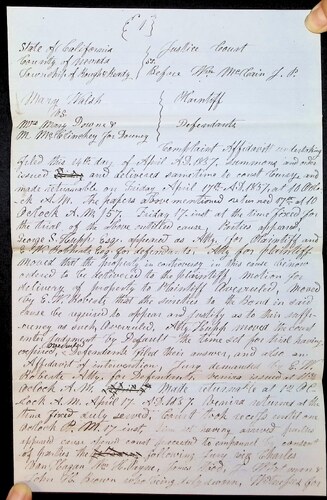 {1}
State of California } Justice Court
County of Nevada } ss.
Township of Rough & Ready } Before Wm McCavin J. P.
Mary Walsh } Plaintiff
vs.
Mrs Mary Downe & Defendants
M. for Downey
Complaint Affidavit
filed this 14th day of April A.D. 1857. Summons and
issued and delivered same time to court
made returnable on Friday April 17th A.D. 1857 at 10 Ocl-
ock A.M. The papers above mentioned returned 17th at 10
Oclock A.M. /57. Friday 17 inst at the time fixed for
the trial of the above entitled cause, Parties appeared,
George S. Hupp Esq. appeared as Atty. for Plaintiff and
E. W. Roberts Esq. for defendants. Atty for plaintiff
moved that the property in controversy in the case be
ordered to be delivered to the plaintiff, motion for
delivery of property to Plaintiff overruled, Moved
by E. W. Roberts that the sureties to the bond in said
cause be required to appear and justify as to their suffi-
ciency as such, overruled. Atty Hupp moved the court
enter Judgment by Default the time set for trial having
expired, overruled Defendants filed their answer, and also an
Affidavit of intervention, Jury demanded by E. W.
Roberts Atty for Defendants, Venire issued at
Oclock A.M. made returnable at 12 Oc-
lock A.M. April 17 A.D. 1857. Venire returned at the
time fixed duly served, Court took recess until one
Oclock P.M. 17 inst, time having arrived parties
appeared court proceeded to empannel by consent
of parties the following Jury viz Charles
Egan Wm Jones
John H. Brown being duly sworn, for